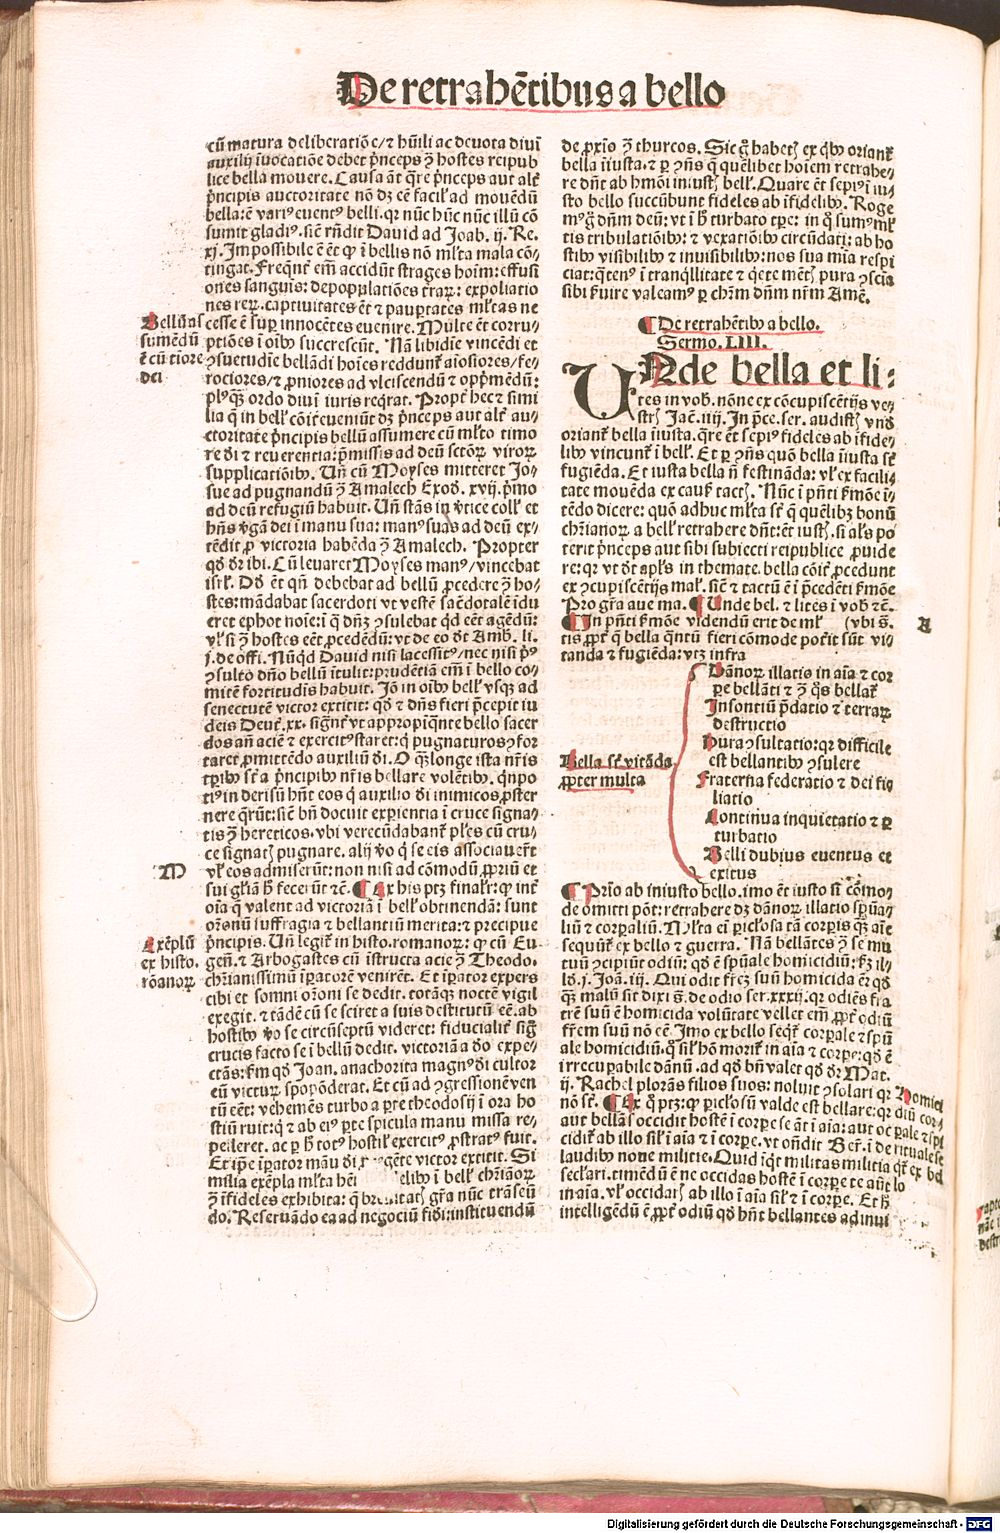 De retrahẽtibus a bello
cũ matura deliberatiõe/ ⁊ hũili ac deuota diui
auxilij ĩuocatiõe debet p̃nceps ↄ̃ hostes reipub
lice bella mouere. Causa ãt q̃re p̃nceps aut alt̃
p̃ncipis auctoritate nõ dꝫ eẽ facił ad mouẽdũ
bella: ẽ variꝰ euentꝰ belli. qꝛ nũc hũc nũc illũ cõ
sumit gladiꝰ. sic̃ rñdit Dauid ad Joab. ij. Re.
xj. Impossibile ẽ ẽt ꝙ ĩ bellis nõ mĺta mala cõ-
tingat. Freqñt̃ em̃ accidũt strages hoĩm: effusi
ones sanguis: depopulatiões t̃rarꝝ: expoliatio
nes rerꝝ. captiuitates ẽt ⁊ paup̱tates mĺtas ne
cesse ẽ sup̱ innocẽtes euenire. Multe ẽt corru-
ptiões ĩ oĩbꝰ succrescũt. Nã libidie vincẽdi et
ↄ̃suetudie bellãdi hoĩes reddunt̃ aĩosiores/ fe-
rociores/ ⁊ ꝓniores ad vlciscendũ ⁊ opp̃mẽdũ:
plꝰqꝫ ordo diui ĩuris reqrat. Propt̃ hec ⁊ simi
lia q̃ in bell̃ cõit̃ eueniũt dꝫ p̃nceps aut alt̃ au-
ctoritate p̃ncipis bellũ assumere cũ mĺto timo
re di ⁊ reuerentia: p̃missis ad deũ sctõrꝝ virorꝝ
supplicatiõibꝰ. Uñ cũ Moyses mitteret Jo-
sue ad pugnandũ ↄ̃ Amalech Exod. xvij. p̃mo
ad deũ refugiũ habuit. Uñ stãs in ṽtice coll̃ et
hñs ṽgã dei ĩ manu sua: manꝰ suas ad deũ ex-
tẽdit ꝓ victoria habẽda ↄ̃ Amalech. Propter
qd dr̃ ibi. Cũ leuaret Moyses manꝰ/ vincebat
isrł. Dd ẽt qñ debebat ad bellũ ꝓcedere ↄ̃ ho-
stes: mãdabat sacerdoti vt vestẽ sac̃dotalẽ ĩdu
eret ephot noĩe: ĩ q̃ dñꝫ ↄsulebat qd eẽt agẽdũ:
vł si ↄ̃ hostes eẽt ꝓcedẽdũ: vt de eo dt Amb. li.
j. de offi. Nũqd Dauid nisi lacessitꝰ/ nec nisi p̃ꝰ
ↄsulto dño bellũ ĩtulit: prudẽtiã em̃ ĩ bello co-
mitẽ fortitudĩs habuit. Jõ in oĩbꝰ bell̃ vsqꝫ ad
senectutẽ victor extitit: qd ⁊ dñs fieri p̃cepit iu
deis Deut̃. xx. sigñt̃ vt appropiq̃nte bello sacer
dos añ aciẽ ⁊ exercitꝰ staret: q̃ pugnaturos ↄfor
taret ꝓmittẽdo auxiliũ di. O qꝫ longe ista nr̃is
tp̱ibꝰ st̃ a p̃ncipibꝰ nr̃is bellare volẽtibꝰ. qñpo
tiꝰ in derisũ hñt eos q̃ auxilio di inimicos ꝓster
nere q̃rũt: sic̃ bñ docuit exp̱ientia ĩ cruce signa-
tis ↄ̃ hereticos. vbi verecũdabant̃ pl̃es cũ cru-
ce signatꝭ pugnare. alij vo q̃ se eis associauer̃t
vł eos admiserũt: non nisi ad cõmodũ ꝓpriũ et
sui gl̃iam ħ fecerũt ⁊c̃. ¶ Ex his ptꝫ finalr̃: ꝙ int̃
oĩa q̃ valent ad victoriã ĩ bell̃ obtinendã: sunt
or̃onũ suffragia ⁊ bellantiũ merita: ⁊ precipue
p̃ncipis. Uñ legit̃ in histo. romanorꝝ: ꝙ cũ Eu
geñ. ⁊ Arbogastes cũ ĩstructa acie ↄ̃ Theodo.
chr̃ianissimũ ĩp̱atorẽ venirẽt. Et ĩp̱ator expers
cibi et somni or̃oni se dedit. totãqꝫ noctẽ vigil
exegit. ⁊ tãdẽ cũ se sciret a suis destitutũ eẽ. ab
hostibꝰ vo se circũseptũ videret: fiducialit̃ sig̃
crucis facto se ĩ bellũ dedit. victoriã a do expe-
ctãs: ẜm qd Joan. anachorita magnꝰ di cultor
eũ victurꝝ spopõderat. Et cũ ad ↄgressionẽ ven
tũ eẽt: vehemẽs turbo a p̱te theodosij ĩ ora ho
stiũ ruit: q̃ ⁊ ab eiꝰ p̱te spicula manu missa re-
pelleret. ac p̱ ħ totꝰ hostił exercitꝰ ꝓstratꝰ fuit.
Et ip̃e ĩp̱ator mãu di victor extitit. Si
milia exẽpla mĺta elibꝰ ĩ bell̃ chr̃ianorꝝ
ↄ̃ ĩfideles exhibita: q̃ gr̃a nũc trãseũ
do. Reseruãdo ea ad negociũ fidi: instituendũ
Bellũ as
sumẽdũ
ẽ cũ tĩore
dei
M
Exẽplũ
ex histo.
rõanorꝝ
de ꝓxĩo ↄ̃ thurcos. Sic g̃ habetꝭ ex qbꝰ oriant̃
bella ĩiusta. ⁊ p̱ ↄñs q̃ quẽlibet hoĩem retrahe-
re dñt ab hmõi iniustꝭ bell̃. Quare ẽt sepiꝰ ĩ iu-
sto bello succũbunt fideles ab ĩfidelibꝰ. Roge
mꝰ g̃ dñm deũ: vt ĩ ħ turbato tp̱e: in q̃ sumꝰ mĺ
tis tribulatiõibꝰ: ⁊ vexatiõibꝰ circũdati: ab ho
stibꝰ visibilibꝰ ⁊ inuisibilibꝰ: nos sua mĩa respi
ciat: qtenꝰ ĩ tranqllitate ⁊ qete mẽtꝭ pura ↄscĩa
sibi ẜuire valeamꝰ p̱ chr̃m dñm nr̃m Amẽ.
¶ De retrahẽtibꝰ a bello.
Sermo. LIII.
Unde bella et li-
tes in vob̃. nõne ex cõcupiscẽtijs ve-
strꝭ Jac̃. iiij. In p̃ce. ser. audistꝭ vnd
oriant̃ bella ĩiusta. q̃re ẽt sepiꝰ fideles ab ĩfide-
libꝰ vincunt̃ ĩ bell̃. Et p̱ ↄñs quõ bella ĩiusta st̃
fugiẽda. Et iusta bella ñ festinãda: vł ex facili-
tate mouẽda ex caus̃ tactꝭ. Nũc ĩ p̃nti ẜmõe ĩ-
tẽdo dicere: quõ adhuc mĺta st̃ q̃ quẽlibꝫ bonũ
chr̃ianorꝝ a bell̃ retrahere dñt: ẽt iustꝭ. si al̃s po
terit p̃nceps aut sibi subiecti reipublice ꝓuide
re: qꝛ vt dt apl̃s in themate. bella cõit̃ ꝓcedunt
ex ↄcupiscẽtijs mał. sic̃ ⁊ tactũ ẽ ĩ p̃cedẽti ẜmõe
Pro gr̃a aue ma. ¶ Unde bel. ⁊ lites ĩ vob̃ ⁊c̃.
¶ In p̃nti ẜmõe videndũ erit de mĺ (vbi s̃.
tis ꝓpt̃ q̃ bella qntũ fieri cõmode pot̃it sũt vi-
tanda ⁊ fugiẽda: vtꝫ infra
A
Bella st̃ vitãda
ꝓpter multa
Dãnorꝝ illatis in aĩa ⁊ cor
p̱e bellãti ⁊ ↄ̃ q̃s bellat̃
Insontiũ p̃datio ⁊ terrarꝝ
destructio
Dura ↄsultatio: qꝛ difficile
est bellantibꝰ ↄsulere
Fraterna federatio ⁊ dei fig
liatio
Continua inquietatio ⁊ p̱
turbatio
Belli dubius euentus et
exitus
¶ Pr̃io ab iniusto bello. imo ẽt iusto si cõmo-
de omitti põt: retrahere dꝫ dãnorꝝ illatio sp̃ua-
liũ ⁊ corp̱aliũ. Mĺta ei p̱icł̃osa tã corp̱is qꝫ aĩe
sequũt̃ ex bello ⁊ guerra. Nã bellãtes ↄ̃ se mu
tuũ ↄcipiũt odiũ: qd ẽ sp̃uale homicidiũ: ẜꝫ il-
ld. j. Joã. iij. Qui odit fr̃eꝫ suũ homicida ẽ: qd
qꝫ malũ sit dixi s̃. de odio ser. xxxij. qꝛ odiẽs fra
trẽ suũ ẽ homicida volũtate vellet em̃ ꝓpt̃ odiũ
fr̃em suũ nõ eẽ. Imo ex bello seqt̃ corp̱ale ⁊ sp̃u
ale homicidiũ. q̃ sił hõ morit̃ in aĩa ⁊ corp̱e: qd ẽ
irrecup̱abile dãnũ. ad qd bñ valet qd dr̃ Mat.
ij. Rachel plorãs filios suos: noluit ↄsolari qꝛ
nõ st̃. ¶ Ex q̃ ptꝫ: ꝙ p̱icł̃osũ valde est bellare: qꝛ
aut bellãs occidit hostẽ ĩ corp̱e se ãt ĩ aĩa: aut oc
cidit̃ ab illo sił ĩ aĩa ⁊ ĩ corp̱e. vt oñdit Ber̃. ĩ de
laudibꝰ noue militie. Quid iq̃t militas militia
sectari. timẽdũ ẽ ne occidas hostẽ ĩ corp̱e te añt̃
in aĩa. vł occidarꝭ ab illo ĩ aĩa sił ⁊ ĩ corp̱e. Et ħ
intelligẽdũ ẽ ꝓpt̃ odiũ qd hñt bellantes adinui
Homici
diũ cor-
p̱ale ⁊ sp̃i
rituale se
qt̃ ex bel
lo